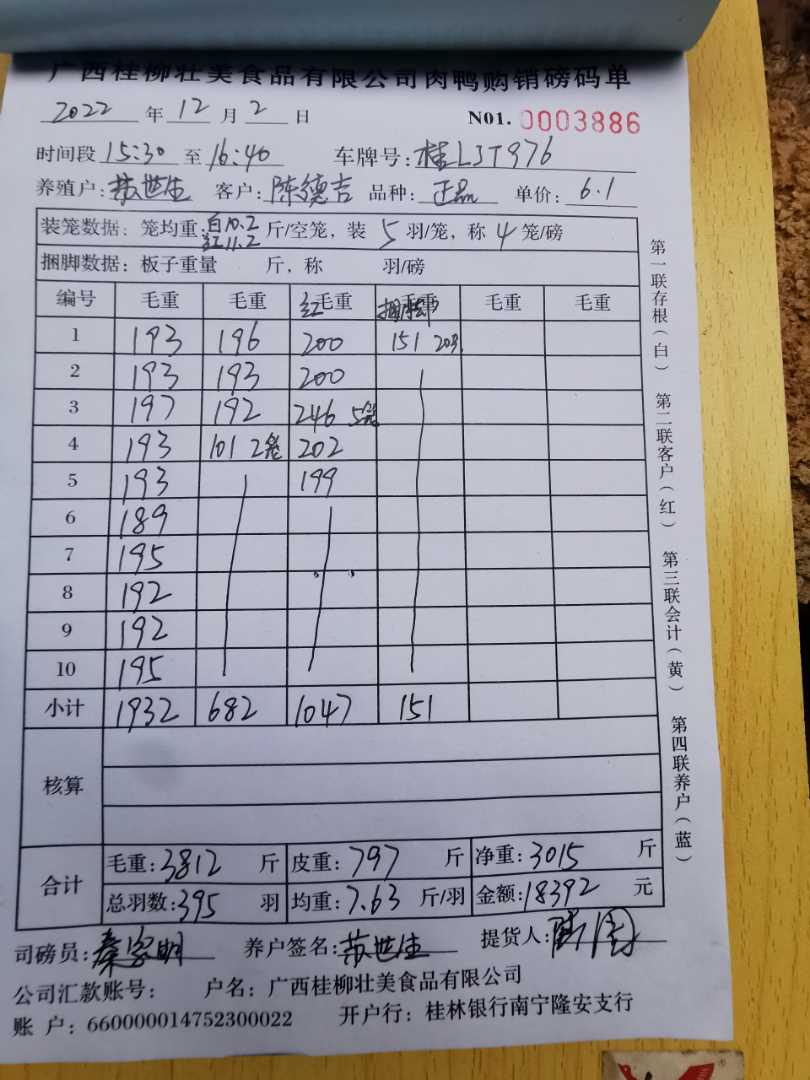 广西桂柳壮美食品有限公司肉鸭购销磅码单
2022 年 12 月 2 日 N01. 0003886
时间段 15:30 至 16:40 车牌号: 桂LJT976
养殖户: 苏世生 客户: 陈德吉 品种: 正品 单价: 6.1
装笼数据: 笼均重: 白10.2 红11.2 斤/空笼, 装 5 羽/笼, 称 4 笼/磅
捆脚数据: 板子重量 斤, 称 羽/磅
编号 毛重 毛重 红毛重 毛重 毛重 毛重
1 193 196 200 151 203
2 193 193 200
3 197 192 246 5笼
4 193 101 2笼 202
5 193 199
6 189
7 195
8 192
9 192
10 195
小计 1932 682 1047 151
核算
合计
毛重: 3812 斤 皮重: 797 斤 净重: 3015 斤
总羽数: 395 羽 均重: 7.63 斤/羽 金额: 18392 元
司磅员: 秦家明 养户签名: 苏世生 提货人:
公司汇款账号: 户名: 广西桂柳壮美食品有限公司
账 户: 660000014752300022 开户行: 桂林银行南宁隆安支行
第一联存根(白) 第二联客户(红) 第三联会计(黄) 第四联养户(蓝)